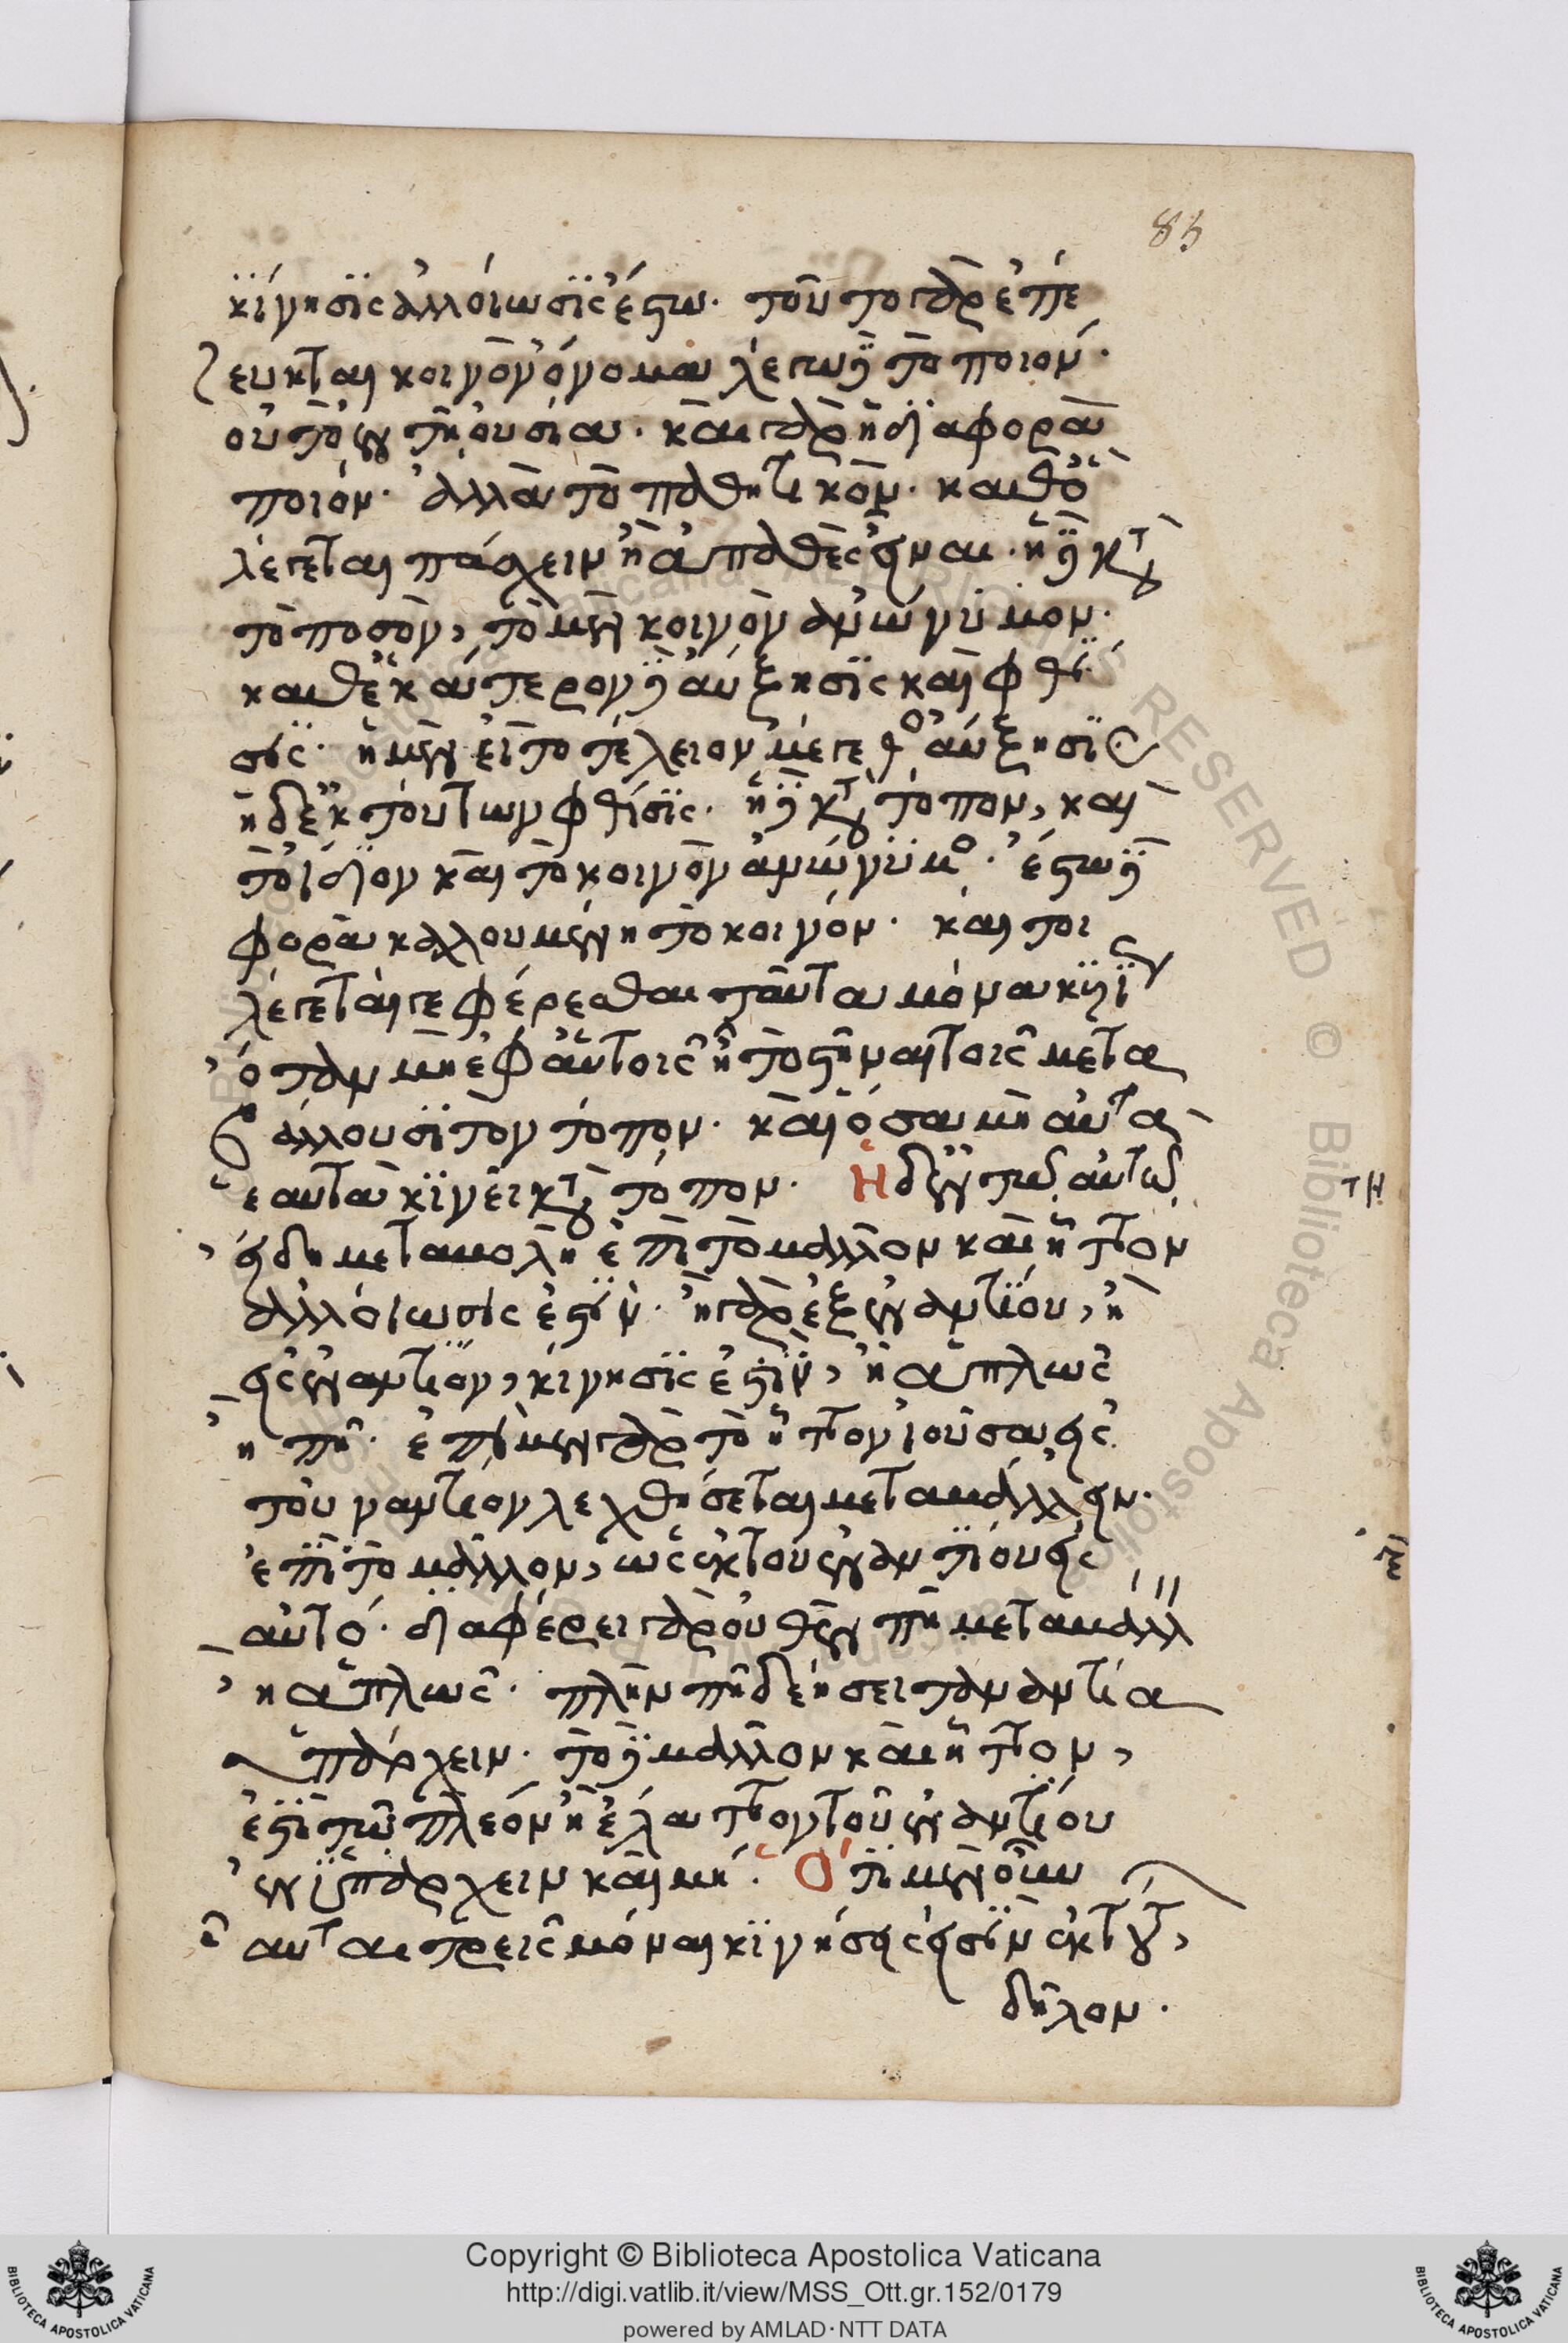 85
κίνησις ἀλλοίωσις ἔστω· τοῦτο γὰρ ἐπέ
ζευκται κοινὸν ὄνομα λέγω δὲ τὸ ποιόν·
οὐ τὸ ἐν τῇ οὐσία· καὶ γὰρ ἡ διαφορὰ
ποιόν· ἀλλὰ τὸ παθητικόν· καθὸ
λέγεται πάσχειν ἢ ἀπαθὲς εἶναι· ἡ δὲ κατὰ
τὸ ποσὸν, τὸ μὲν κοινὸν ἀνώνυμον·
καθ' ἑκάτερον δὲ αὔξησις καὶ φθί
σις· ἡ μὲν εἰς τὸ τέλειον μέγεθος αὔξησις
ἡ δ' ἐκ τούτων φθίσις· ἡ δὲ κατὰ τόπον, καὶ
τὸ ἴδιον καὶ τὸ κοινὸν ἀνώνυμος· ἔστω δὲ
φορὰ καλουμένη τὸ κοινόν· καί τοι
λέγεταί γε φέρεσθαι ταῦτα μόνα κυρίως
ὅταν μὴ ἐφ' αὑτοῖς ᾖ τὸ στῆναι τοῖς μετα
βάλλουσι τὸν τόπον· καὶ ὅσα μὴ αὐτὰ
ἑαυτὰ κινεῖ κατὰ τόπον· Ἡ δ' ἐν τῷ αὐτῷ
εἴδει μεταβολὴ ἐπὶ τὸ μᾶλλον καὶ ἧττον
ἀλλοίωσίς ἐστίν· ἢ γὰρ ἐξ ἐναντίου, ἢ
εἰς ἐναντίον, κίνησις ἐστὶν, ἢ ἁπλῶς
ἢ πῆ· ἐπὶ μὲν γὰρ τὸ ἧττον ἰοῦσα εἰς
τοὐναντίον λεχθήσεται μεταβάλλειν·
ἐπὶ τὸ μᾶλλον, ὡς ἐκ τοῦ ἐναντίου εἰς
αὐτό· διαφέρει γὰρ οὐθὲν πῆ μεταβάλλειν
ἢ ἁπλῶς· πλὴν πῆ δεήσει τἀναντία
ὑπάρχειν· τὸ δὲ μᾶλλον καὶ ἧττον,
ἐστὶ τῷ πλέον ἢ ἔλαττον τοῦ ἐναντίου
ἐνυπάρχειν καὶ μή. Ὅτι μὲν οὖν
αὗται τρεῖς μόναι κινήσεις εἰσὶν ἐκ τούτων,
δῆλον.
Copyright © Biblioteca Apostolica Vaticana
http://digi.vatlib.it/view/MSS_Ott.gr.152/0179
powered by AMLAD·NTT DATA